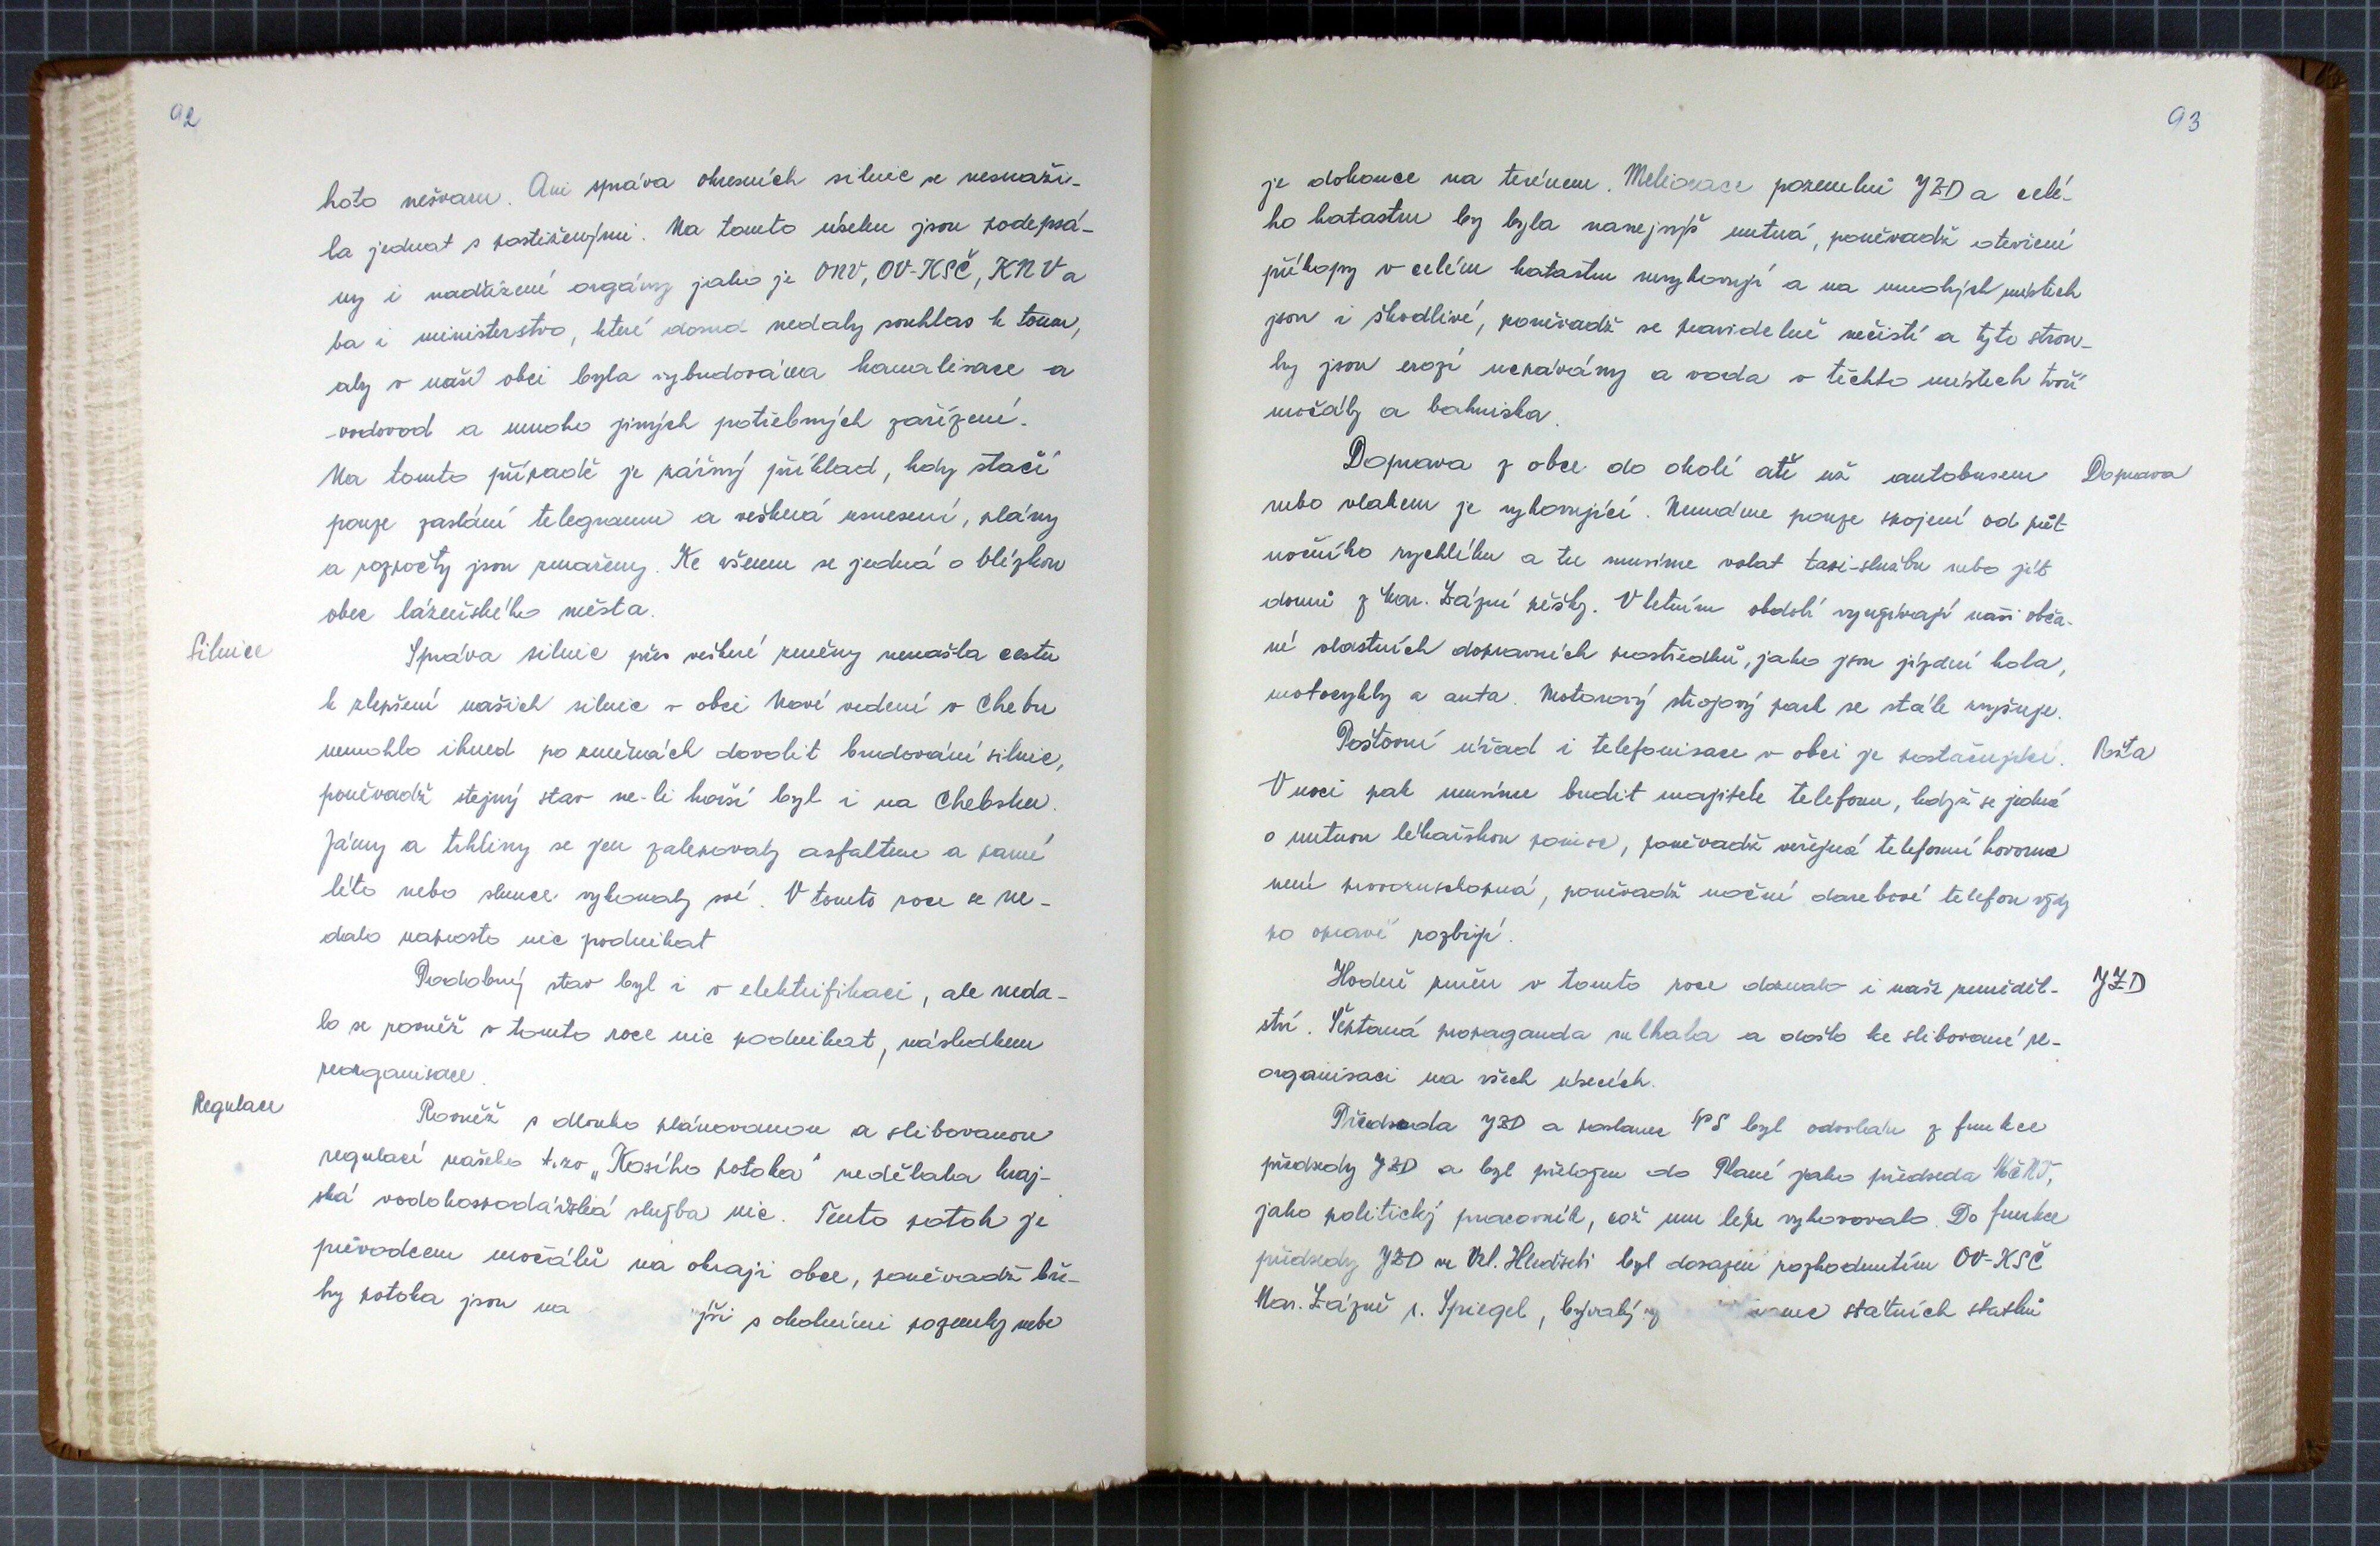 92
hoto nešvaru. Ani správa okresních silnic se nesnaži-
la jednat s postiženými. Na tomto úseku jsou podepsá-
ny i nadřízené orgány jako je ONV, OV-KSČ, KNV a
ba i ministerstvo, které dosud nedaly souhlas k tomu,
aby v naší obci byla vybudována kanalisace a
vodovod a mnoho jiných potřebných zařízení.
Na tomto případě je zářný příklad, kdy stačí
pouze zaslání telegramu a veškerá usnesení, plány
a rozpočty jsou zmařeny. Ke všemu se jedná o blízkou
obec lázeňského města.
Silnice
Správa silnic přes veškeré změny nenašla cestu
k zlepšení našich silnic v obci Nové vedení v Chebu
nemohlo ihned po změnách dovolit budování silnic,
poněvadž stejný stav ne-li horší byl i na Chebsku.
Jámy a trhliny se jen zalepovaly asfaltem a parné
léto nebo slunce vykonaly své. V tomto roce se ne-
dalo naprosto nic podnikat
Podobný stav byl i v elektrifikaci, ale neda-
lo se rovněž v tomto roce nic podnikat, následkem
reorganisace.
Regulace
Rovněž s dlouho plánovanou a slibovanou
regulací našeho t.zv „Kosího potoka" nedělala kraj-
ská vodohospodářská služba nic. Tento potok je
původcem močálů na okraji obce, poněvadž bře-
hy potoka jsou na ýši s okolními pozemky nebo
93
je dokonce na terénem. Meliorace pozemků JZD a celé-
ho katastru by byla nanejvýš nutná, poněvadž otevřené
příkopy v celém katastru nevyhovují a na mnohých místech
jsou i škodlivé, poněvadž se pravidelně nečistí a tyto strou-
hy jsou erozí ucpávány a voda v těchto místech tvoří
močály a bahniska.
Doprava z obce do okolí ať už autobusem
Doprava
nebo vlakem je vyhovující. Nemáme pouze spojení od půl
nočního rychlíku a tu musíme volat taxi-službu nebo jít
domů z Mar. Lázní pěšky. V letním období využívají naši obča-
né vlastních dopravních prostředků, jako jsou jízdní kola,
motocykly a auta. Motorový strojový park se stále zvyšuje.
Poštovní úřad i telefonisace v obci je postačující.
Pošta
V noci pak musíme budit majitele telefonu, když se jedná
o nutnou lékařskou pomoc, poněvadž veřejná telefonní hovorna
není provozuschopná, poněvadž noční darebové telefon vždy
po opravě rozbijí.
Hodně změn v tomto roce doznalo i naše zeměděl-
JZD
ství. Šeptaná propaganda nelhala a došlo ke slibované re-
organisaci na všech úsecích.
Předseda JZD a poslanec NS byl odvolán z funkce
předsedy JZD a byl přeložen do Plané jako předseda MěNV,
jako politický pracovník, což mu lépe vyhovovalo. Do funkce
předsedy JZD ve Vel. Hleďsebi byl dosazen rozhodnutím OV-KSČ
Mar. Lázně s. Spiegel, bývalý státních statků